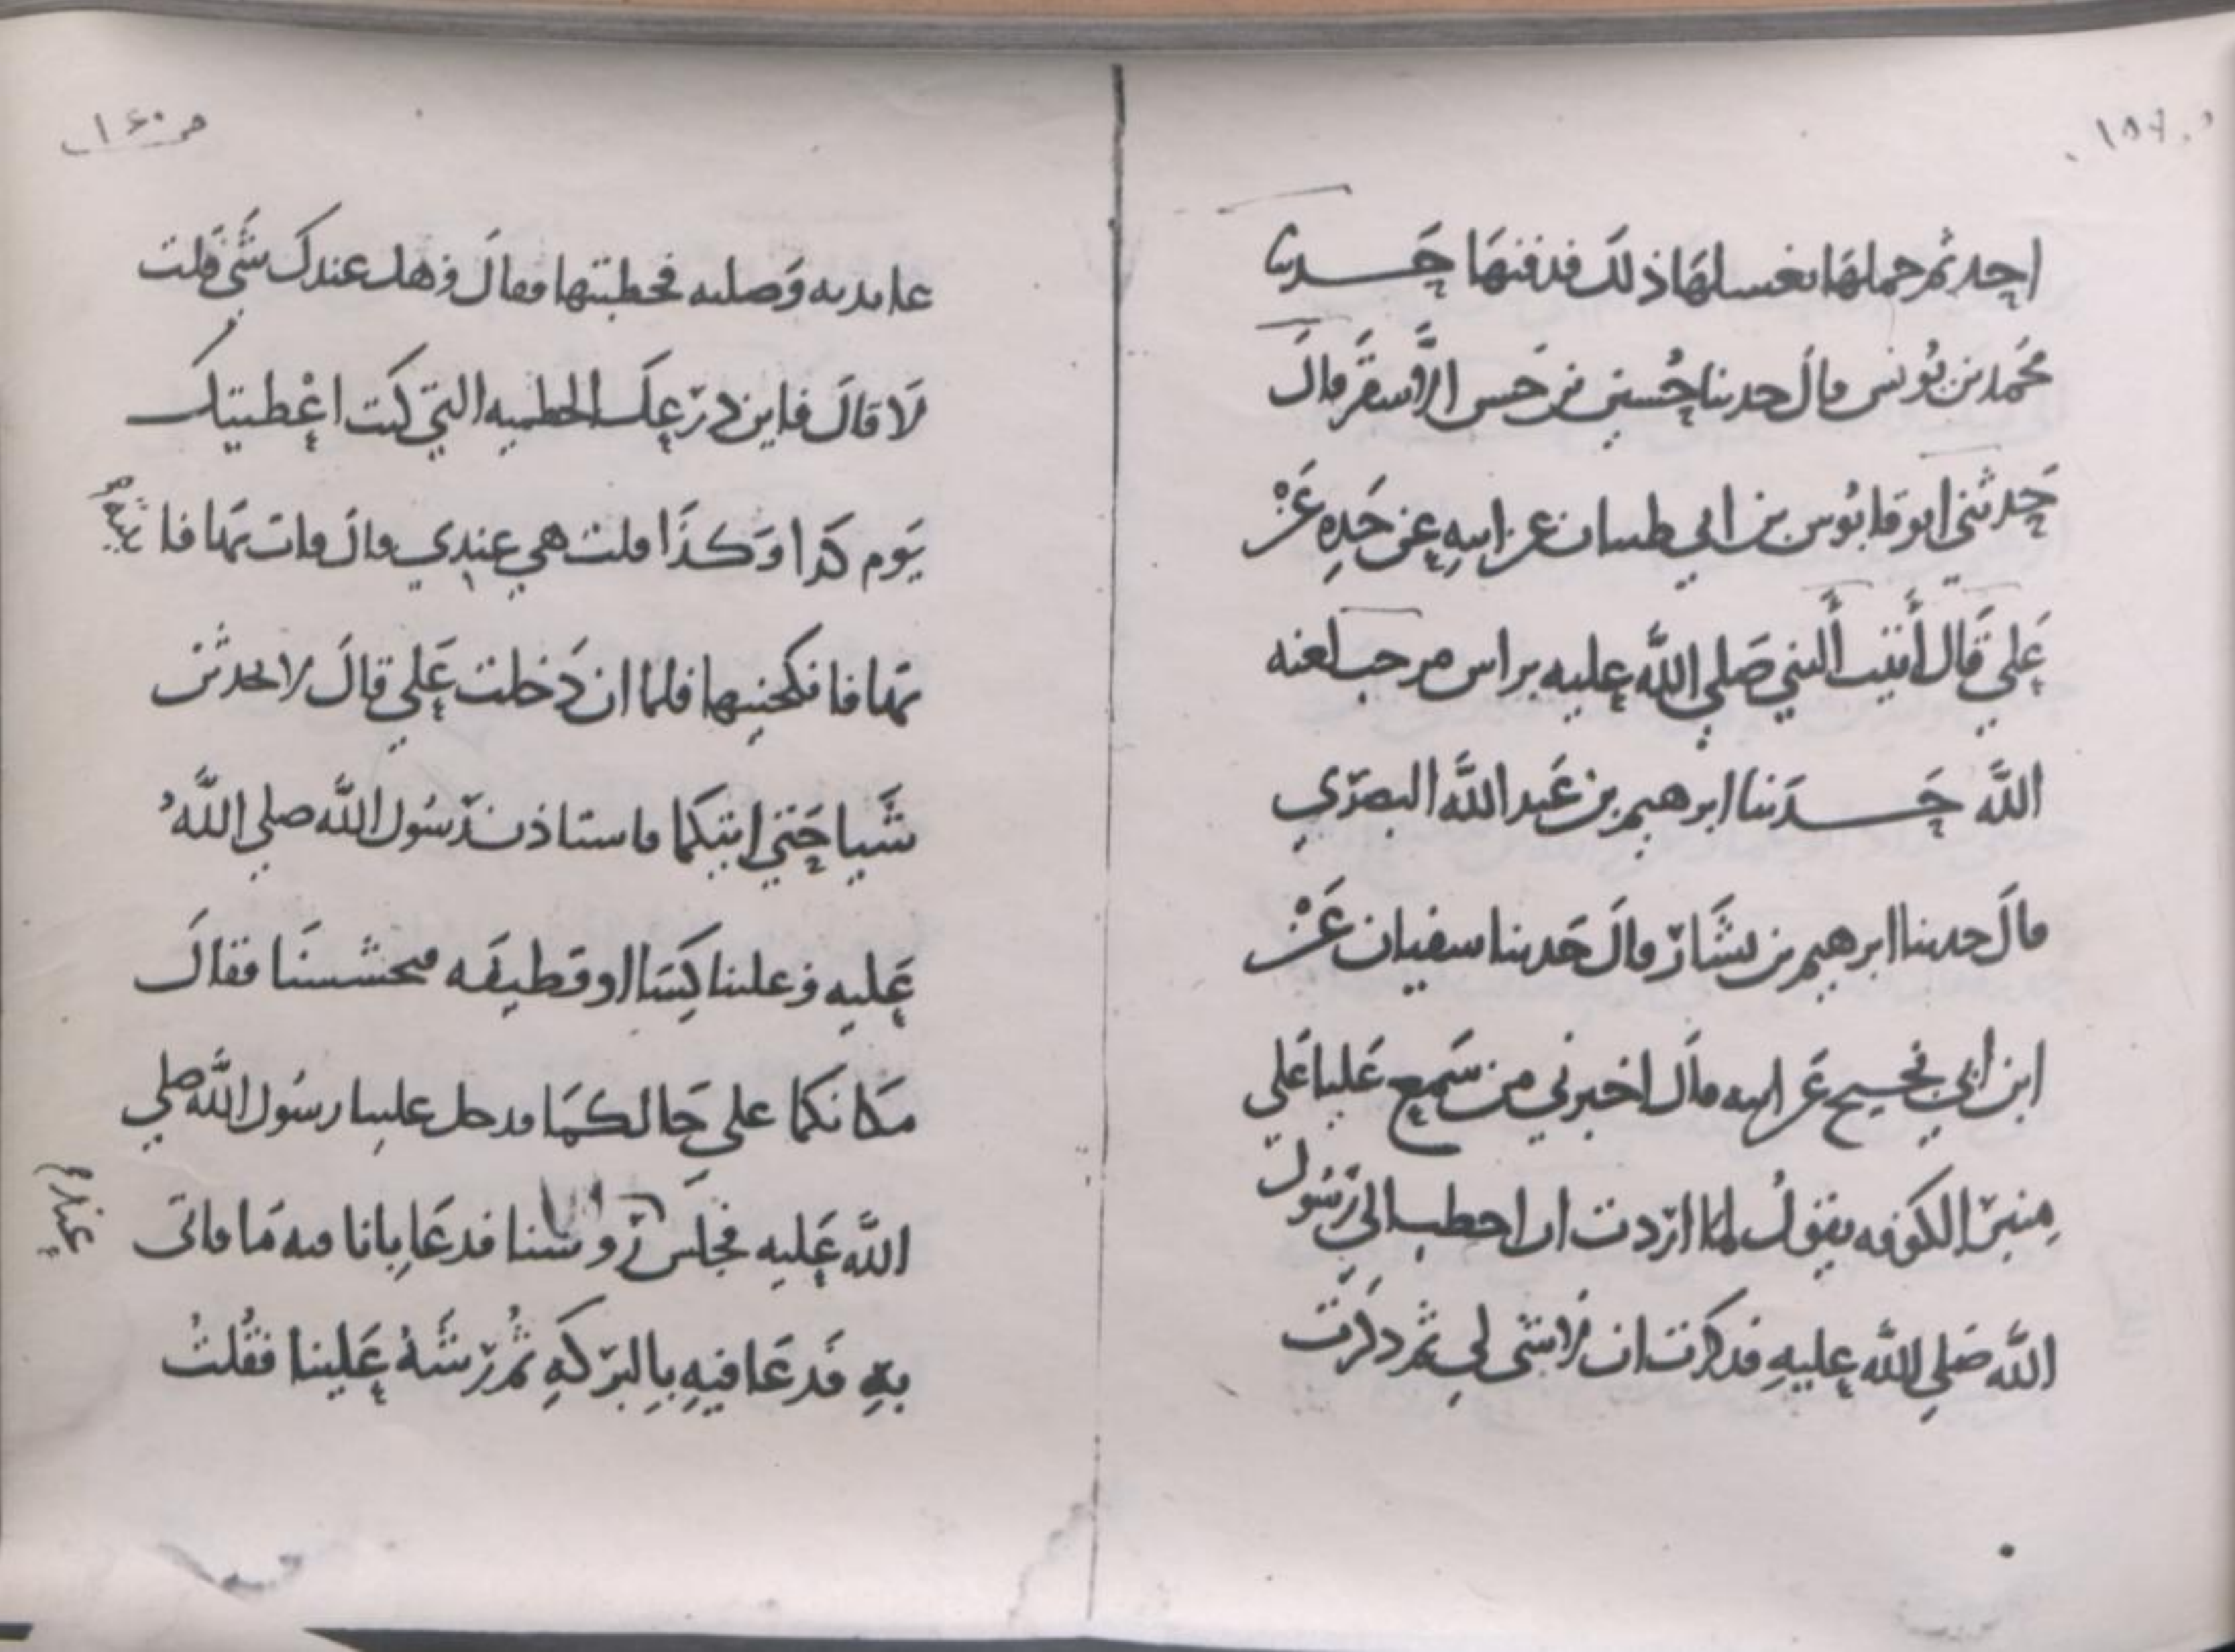 ١٥٩
احد ثم حملها بغسلها ذلك فدفنها حدثنا
محمد بن يونس قال حدثنا حسين بن حسن الاشقر قال
حدثني ابو قابوس بن ابي ظبيان عن ابيه عن جده عن
علي قال أتيت ألنبي صلي الله عليه براس مرحب لعنه
الله حدثنا ابرهيم بن عبد الله البصري
قال حدثنا ابرهيم بن بشار قال حدثنا سفيان عن
ابن أبي نجيح عن ابيه قال اخبرني من سمع عليا علي
منبر الكوفه يقول لما اردت ان اخطب الي رسول
الله صلي الله عليه فذكرت ان لا شي لي ثم ذكرت
ص ١٦٠
عايدته وصلته فخطبتها فقال وهل عندك شي قلت
لا قال فاين درعك الحطميه التي كنت اعطيتك
يوم كذا وكذا قلت هي عندي قال فات بها فا
بها فا فنكحنيها فلما ان دخلت علي قال لا تحدثن
شيا حتي اتيكما فاستاذن رسول الله صلي الله
عليه وعلينا كسا او قطيفه فتحشسنا فقال
مكانكما علي حالكما فدخل علينا رسول الله صلي
الله عليه فجلس رووسنا فدعا بانا فيه ما فاتي
عند
به فدعا فيه بالبركه ثم رشه علينا فقلت